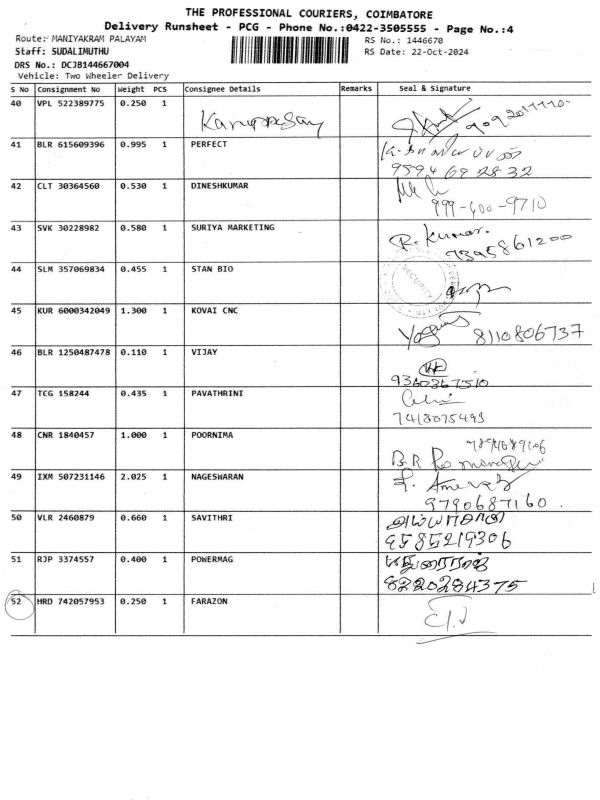 THE PROFESSIONAL COURIERS, COIMBATORE
Delivery Runsheet - PCG - Phone No.:0422-3505555 - Page No.:4
Route: MANIYAKRAM PALAYAM
RS No.: 1446670
Staff: SUDALIMUTHU
RS Date: 22-Oct-2024
DRS No.: DCJB144667004
Vehicle: Two Wheeler Delivery
S No Consignment No Weight PCS Consignee Details Remarks Seal & Signature
40 VPL 522389775 0.250 1 Karuppasamy
41 BLR 615609396 0.995 1 PERFECT
9594692832
42 CLT 30364560 0.530 1 DINESHKUMAR
999-600-9710
43 SVK 30228982 0.580 1 SURIYA MARKETING R. Kumar.
7395861200
44 SLM 357069834 0.455 1 STAN BIO
SECURITY
45 KUR 6000342049 1.300 1 KOVAI CNC
8110806737
46 BLR 1250487478 0.110 1 VIJAY
9360367510
47 TCG 158244 0.435 1 PAVATHRINI
7413075493
48 CNR 1840457 1.000 1 POORNIMA
B.R
49 IXM 507231146 2.025 1 NAGESWARAN
9790687160.
50 VLR 2460879 0.660 1 SAVITHRI
9585219306
51 RJP 3374557 0.400 1 POWERMAG
8220284375
52 HRD 742057953 0.250 1 FARAZON